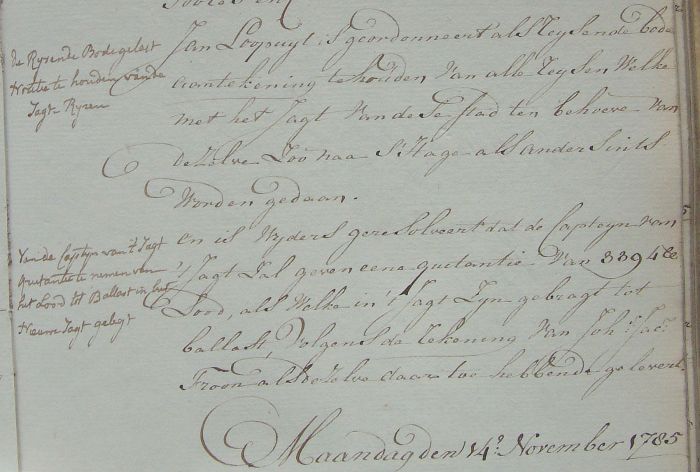 De Rysende Bode gelast
Notitie te houden van de
Jagt Rysen
Jan Loopuyt is geordonneert als Reysende bode
aantekening te houden Van alle Reysen Welke
met het Jagt Van dese stad ten behoeve Van
de Zelve Zoo naa S'Hage als andersints
Worden gedaan.
Van de Captyn van 't Jagt
quitantie te nemen van
het Lood tot Ballast in het
Nieuwe Jagt gelegt
en is Wyders geresolveert dat de Capteyn van
't Jagt Zal geven eene quitantie Van 3394 lb
Lood, als Welke in 't Jagt Zyn gebragt tot
ballast, Volgens de Rekening Van Joh: Jac:
Froon als de Zelve daar toe hebbende gelevert.
Maandag den 14e November 1785